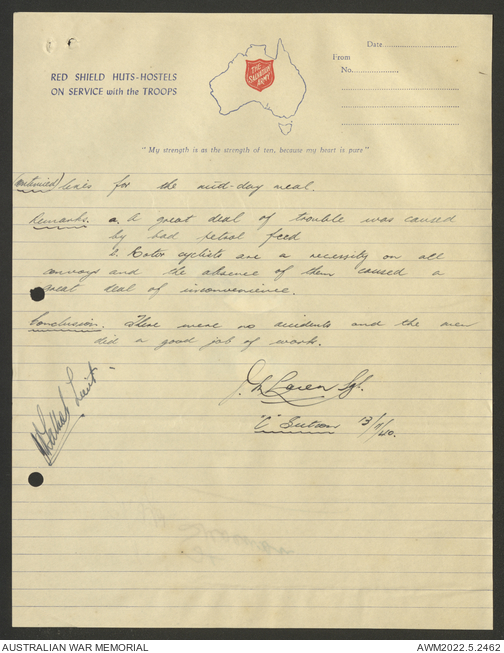 Date
From
No.
RED SHIELD HUTS-HOSTELS
ON SERVICE with the TROOPS
THE
SALVATION
ARMY
"My strength is as the strength of ten, because my heart is pure"
(Continued) lines for the mid-day meal.
Remarks. a. A great deal of trouble was caused
by bad petrol feed
b. Motor cyclists are a necessity on all
convoys and the absence of them caused a
great deal of inconvenience.
Conclusion. There were no accidents and the men
did a good job of work.
Sgt.
"C" Section 13/7/40.
Lieut
AUSTRALIAN WAR MEMORIAL
AWM2022.5.2462